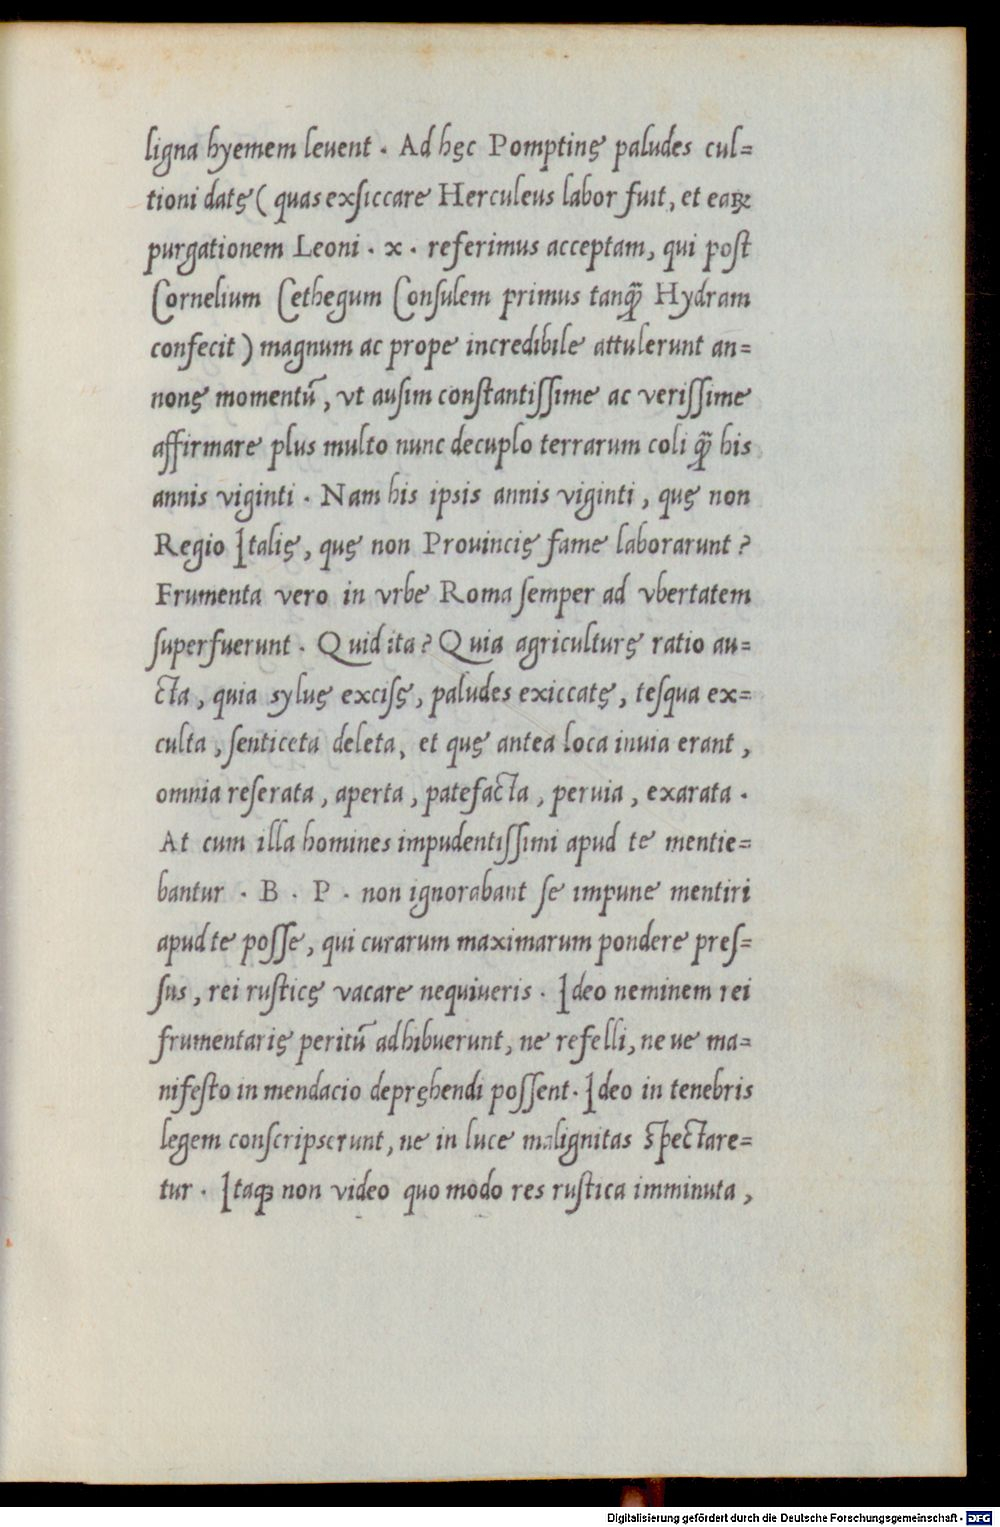 ligna hyemem leuent . Ad hęc Pomptinę paludes cul=
tioni datę ( quas exſiccare Herculeus labor fuit, et eaꝝ
purgationem Leoni . x . referimus acceptam, qui poſt
Cornelium Cethegum Conſulem primus tanꝙ̃ Hydram
confecit ) magnum ac prope incredibile attulerunt an=
nonę momentũ, vt auſim conſtantiſſime ac veriſſime
affirmare plus multo nunc decuplo terrarum coli ꝙ̃ his
annis viginti . Nam his ipsis annis viginti, quę non
Regio Italię, quę non Prouincię fame laborarunt ?
Frumenta vero in vrbe Roma ſemper ad vbertatem
ſuperfuerunt . Quid ita ? Quia agriculturę ratio au=
cta, quia syluę exciſę, paludes exiccatę, teſqua ex=
culta, ſenticeta deleta, et quę antea loca inuia erant,
omnia reſerata, aperta, patefacta, peruia, exarata .
At cum illa homines impudentiſſimi apud te mentie=
bantur . B . P . non ignorabant ſe impune mentiri
apud te poſſe, qui curarum maximarum pondere preſ=
ſus, rei ruſticę vacare nequiueris . Ideo neminem rei
frumentarię peritũ adhibuerunt, ne refelli, ne ue ma=
nifeſto in mendacio depręhendi poſſent . Ideo in tenebris
legem conſcripserunt, ne in luce malignitas ſpectare=
tur . Itaqꝫ non video quo modo res ruſtica imminuta,
Digitalisierung gefördert durch die Deutsche Forschungsgemeinschaft - DFG